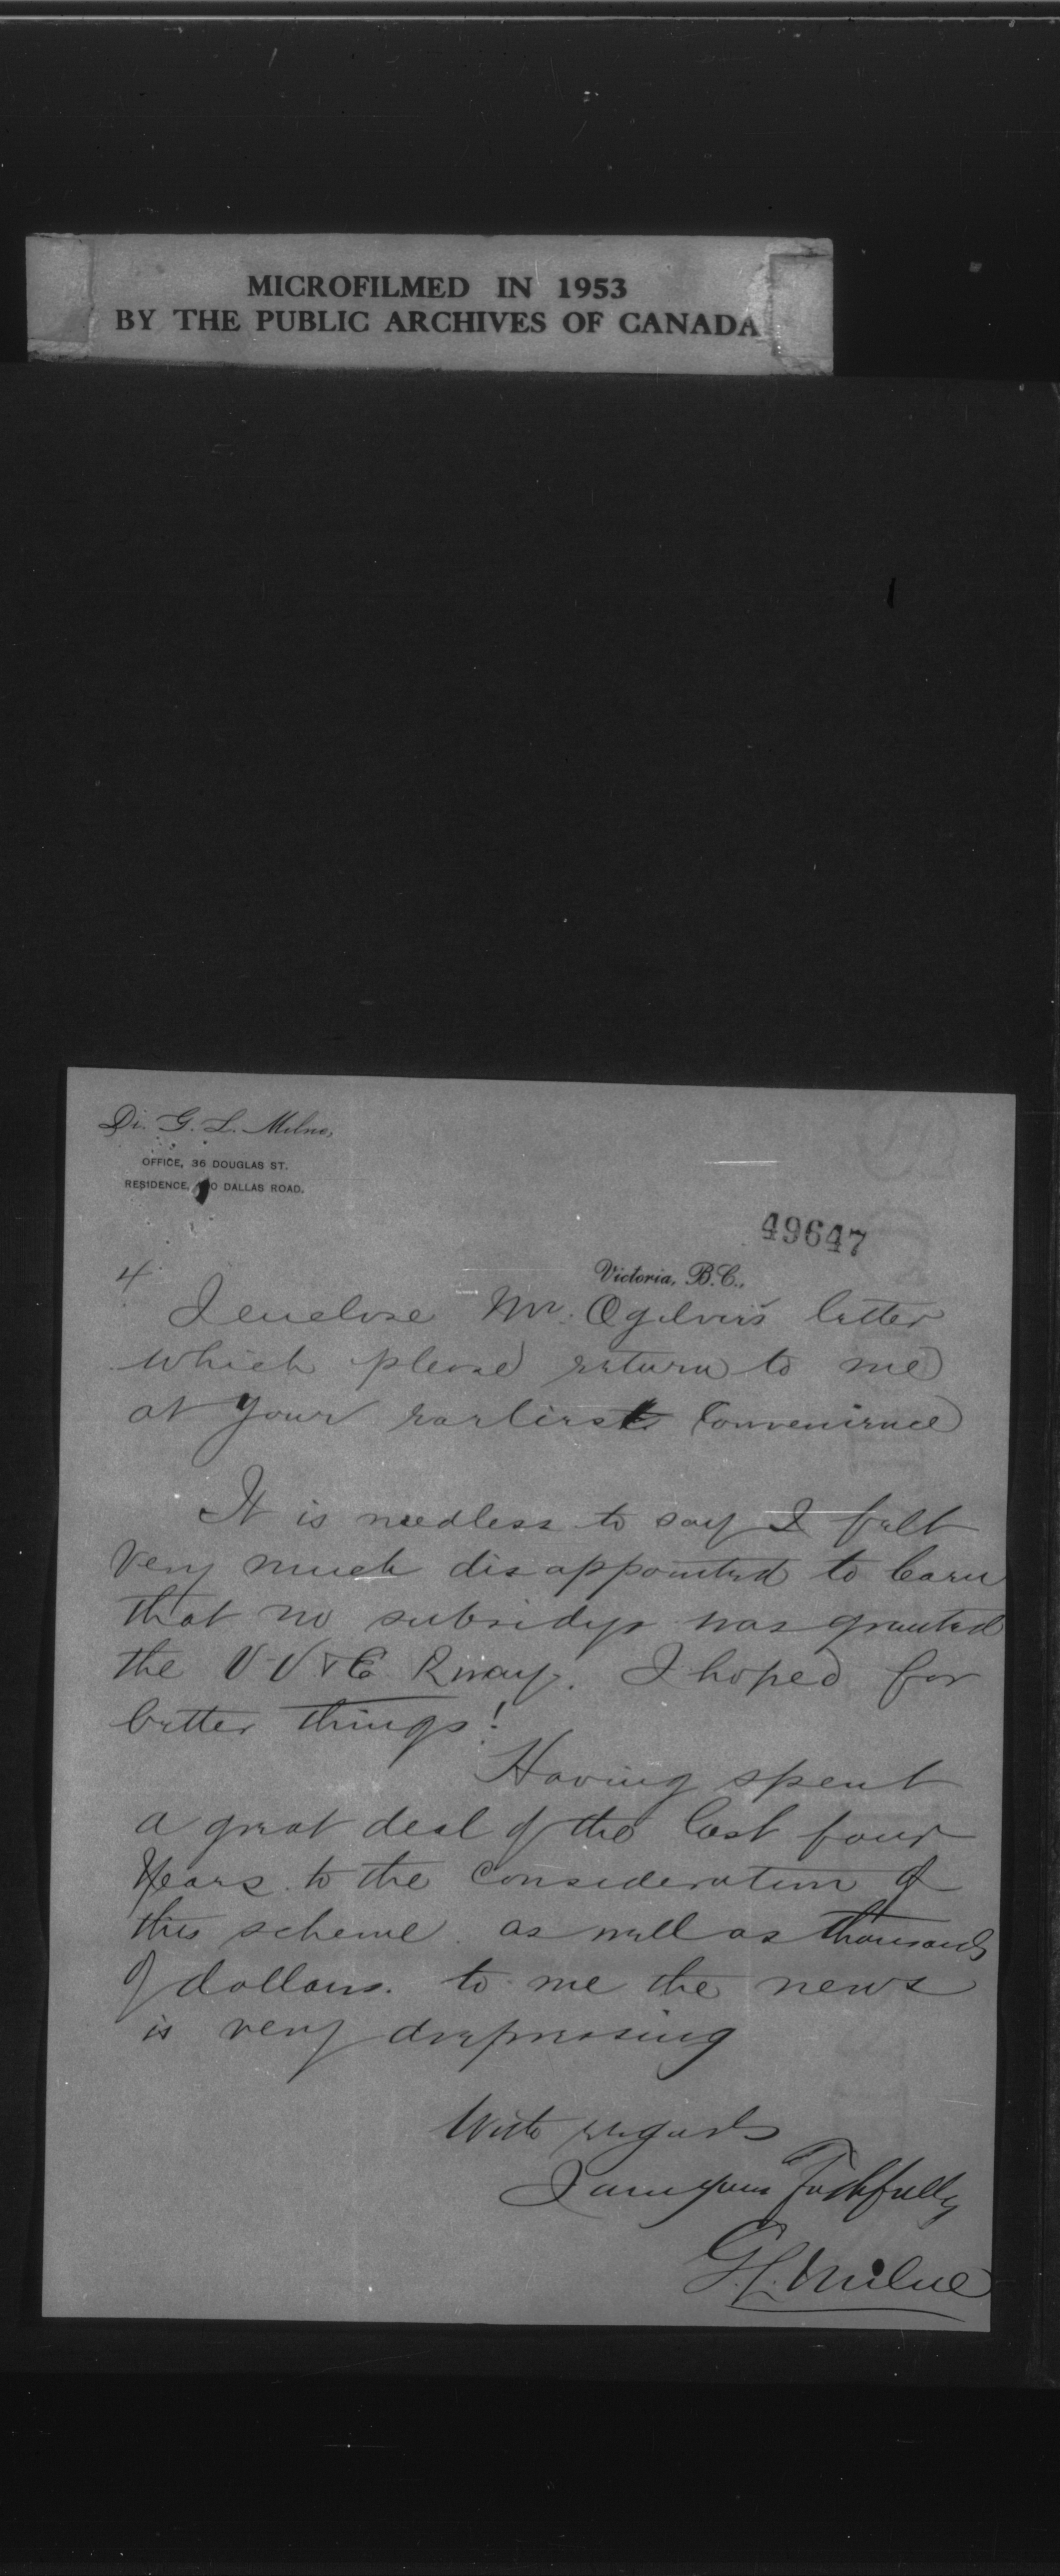 MICROFILMED IN 1953
BY THE PUBLIC ARCHIVES OF CANADA
Dr. G. L. Milne,
OFFICE, 36 DOUGLAS ST.
RESIDENCE, 0 DALLAS ROAD.
49647
Victoria, B.C.,
4
I enclose Mr. Ogilvie's letter
which please return to me
at your earliest convenience
It is needless to say I felt
very much disappointed to learn
that no subsidy was granted
the V V & E Rway. I hoped for
better things!
Having spent
a great deal of the last four
years to the consideration of
this scheme as well as thousands
of dollars. to me the news
is very depressing
With regards
I am yours Faithfully
G.L. Milne